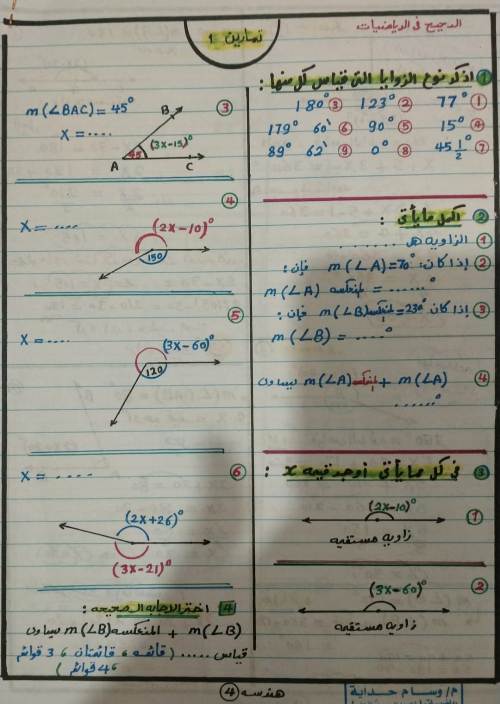 الدحيح فى الرياضيات
تمارين 1
1 اذكر نوع الزوايا التى قياس كل منها :
① 77° ② 123° ③ 180°
④ 15° ⑤ 90° ⑥ 179° 60'
⑦ 45 1/2° ⑧ 0° ⑨ 89° 62'
2 اكمل ما يأتى :
① الزاويه هى ......
② إذا كان: m(∠A) = 70° فإن :
m(∠A) المنعكسه = .......°
③ إذا كان m(∠B) المنعكسه = 230° فإن :
m(∠B) = ....°
④ m(∠A) + m(∠A) المنعكسه يساوى
......°
3 فى كل مما يأتى أوجد قيمه x :
①
(2x-10)°
زاويه مستقيه
②
(3x-60)°
زاويه مستقيه
③ m(∠BAC) = 45°
X = ....
B
(3x-15)°
45
A C
④
X = ....
(2x-10)°
150
⑤
X = ....
(3x-60)°
120
⑥
X = ....
(2x+26)°
(3x-21)°
4 اختر الاجابه الصحيحه :
m(∠B) + m(∠B) المنعكسه يساوى
قياس ..... ( قائمه ، قائمتان ، 3 قوائم
، 4 قوائم )
هندسه ④
م/ وسام حداية